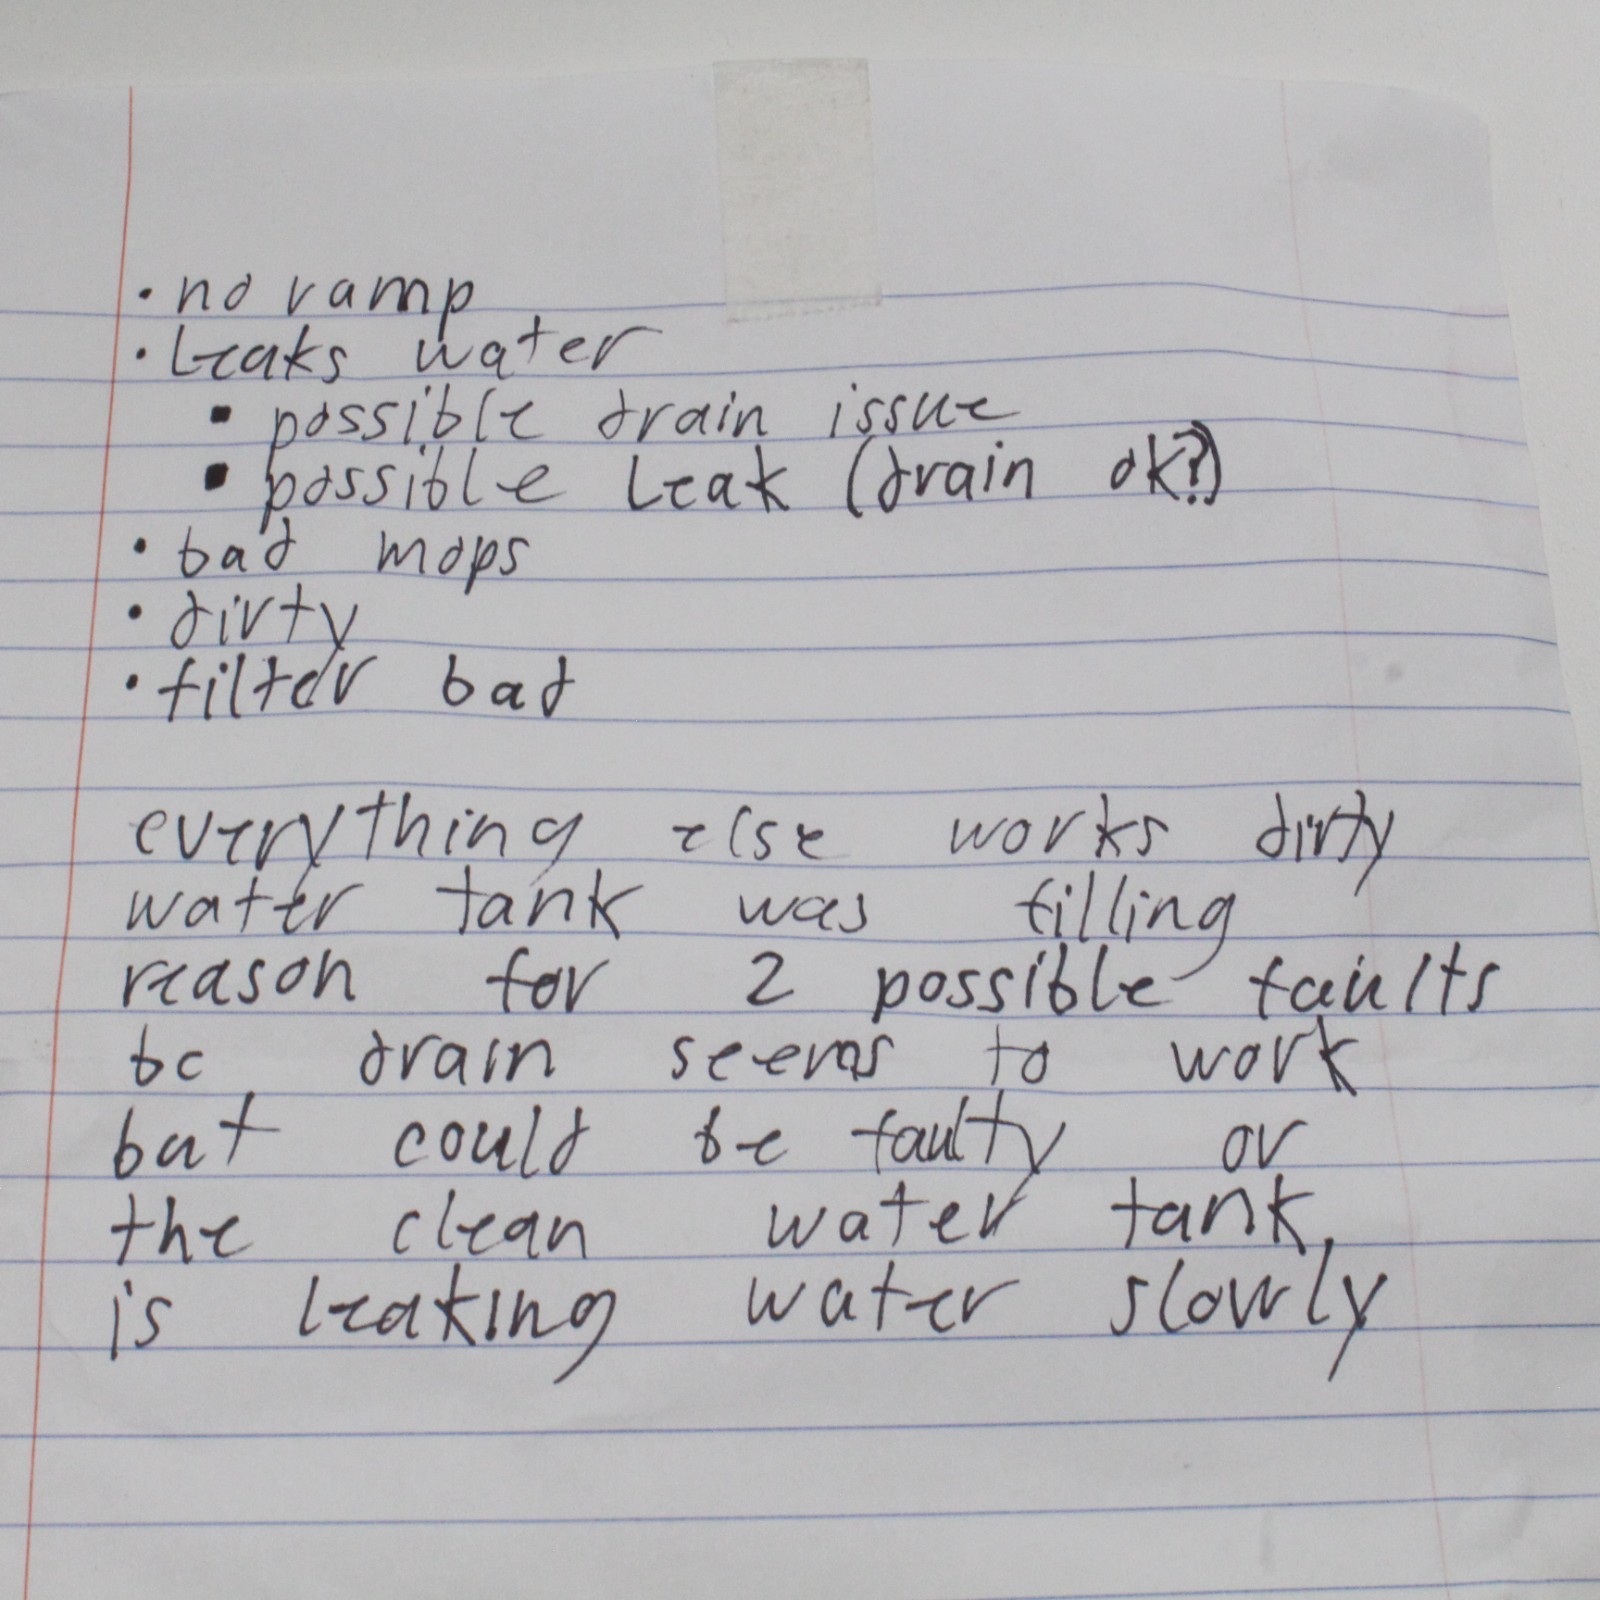 · no ramp
· Leaks water
▪ possible drain issue
▪ possible Leak (drain ok?)
· bad mops
· dirty
· filter bad
everything else works dirty
water tank was filling
reason for 2 possible faults
bc drain seems to work
but could be faulty or
the clean water tank
is leaking water slowly